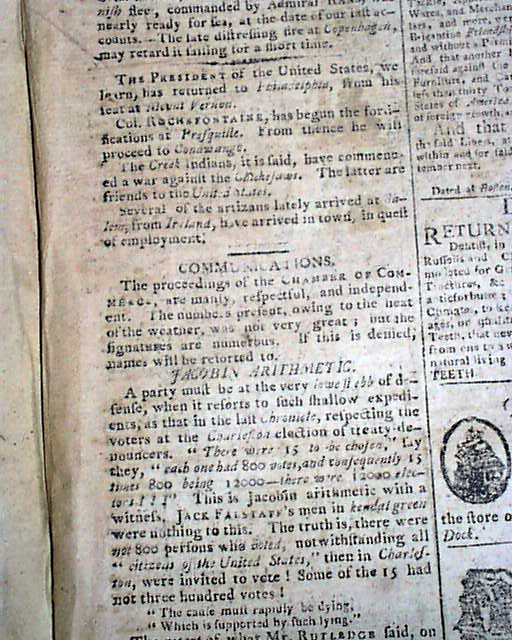 nish fleet, commanded by Admiral
nearly ready for sea, at the date of our last ac-
counts.—The late distressing fire at Copenhagen,
may retard it sailing for a short time.
THE PRESIDENT of the United States, we
learn, has returned to Philadelphia, from his
seat at Mount Vernon.
Col. ROCHEFONTAINE, has begun the forti-
fications at Presquille. From thence he will
proceed to Conawango.
The Creek Indians, it is said, have commenc-
ed a war against the Chickesaws. The latter are
friends to the United States.
Several of the artizans lately arrived at Sa-
lem, from Ireland, have arrived in town, in quest
of employment.
COMMUNICATIONS.
The proceedings of the CHAMBER OF COM-
MERCE, are manly, respectful, and independ-
ent. The numbers present, owing to the heat
of the weather, was not very great; but the
signatures are numerous. If this is denied,
names will be resorted to.
JACOBIN ARITHMETIC.
A party must be at the very lowest ebb of de-
fense, when it resorts to such shallow expedi-
ents, as that in the last Chronicle, respecting the
voters at the Charleston election of treaty-de-
nouncers. "There were 15 to be chosen," say
they, "each one had 800 votes, and consequently 15
times 800 being 12000—there were 12000 elec-
tors!!!" This is Jacobin arithmetic with a
witness. JACK FALSTAFF's men in kendal green
were nothing to this. The truth is, there were
not 800 persons who voted, notwithstanding all
"citizens of the United States," then in Charles-
ton, were invited to vote! Some of the 15 had
not three hundred votes!
"The cause must rapidly be dying,
"Which is supported by such lying."
of what Mr. RUTLEDGE said, on
Wares, and Merchan
Brigantine Friendship
and without a
And that another
foresaid against the
Furniture, and
less than thirty
States of America
of foreign growth
And that
th said Libels, at
within and for said
tember next.
Dated at Boston
RETURN
Dentist, in
Russells and
Fractures, &c
anticforbutic;
Climates, to
ages, or
Teeth, that
from one to a
natural living
TEETH
the store o
Dock.